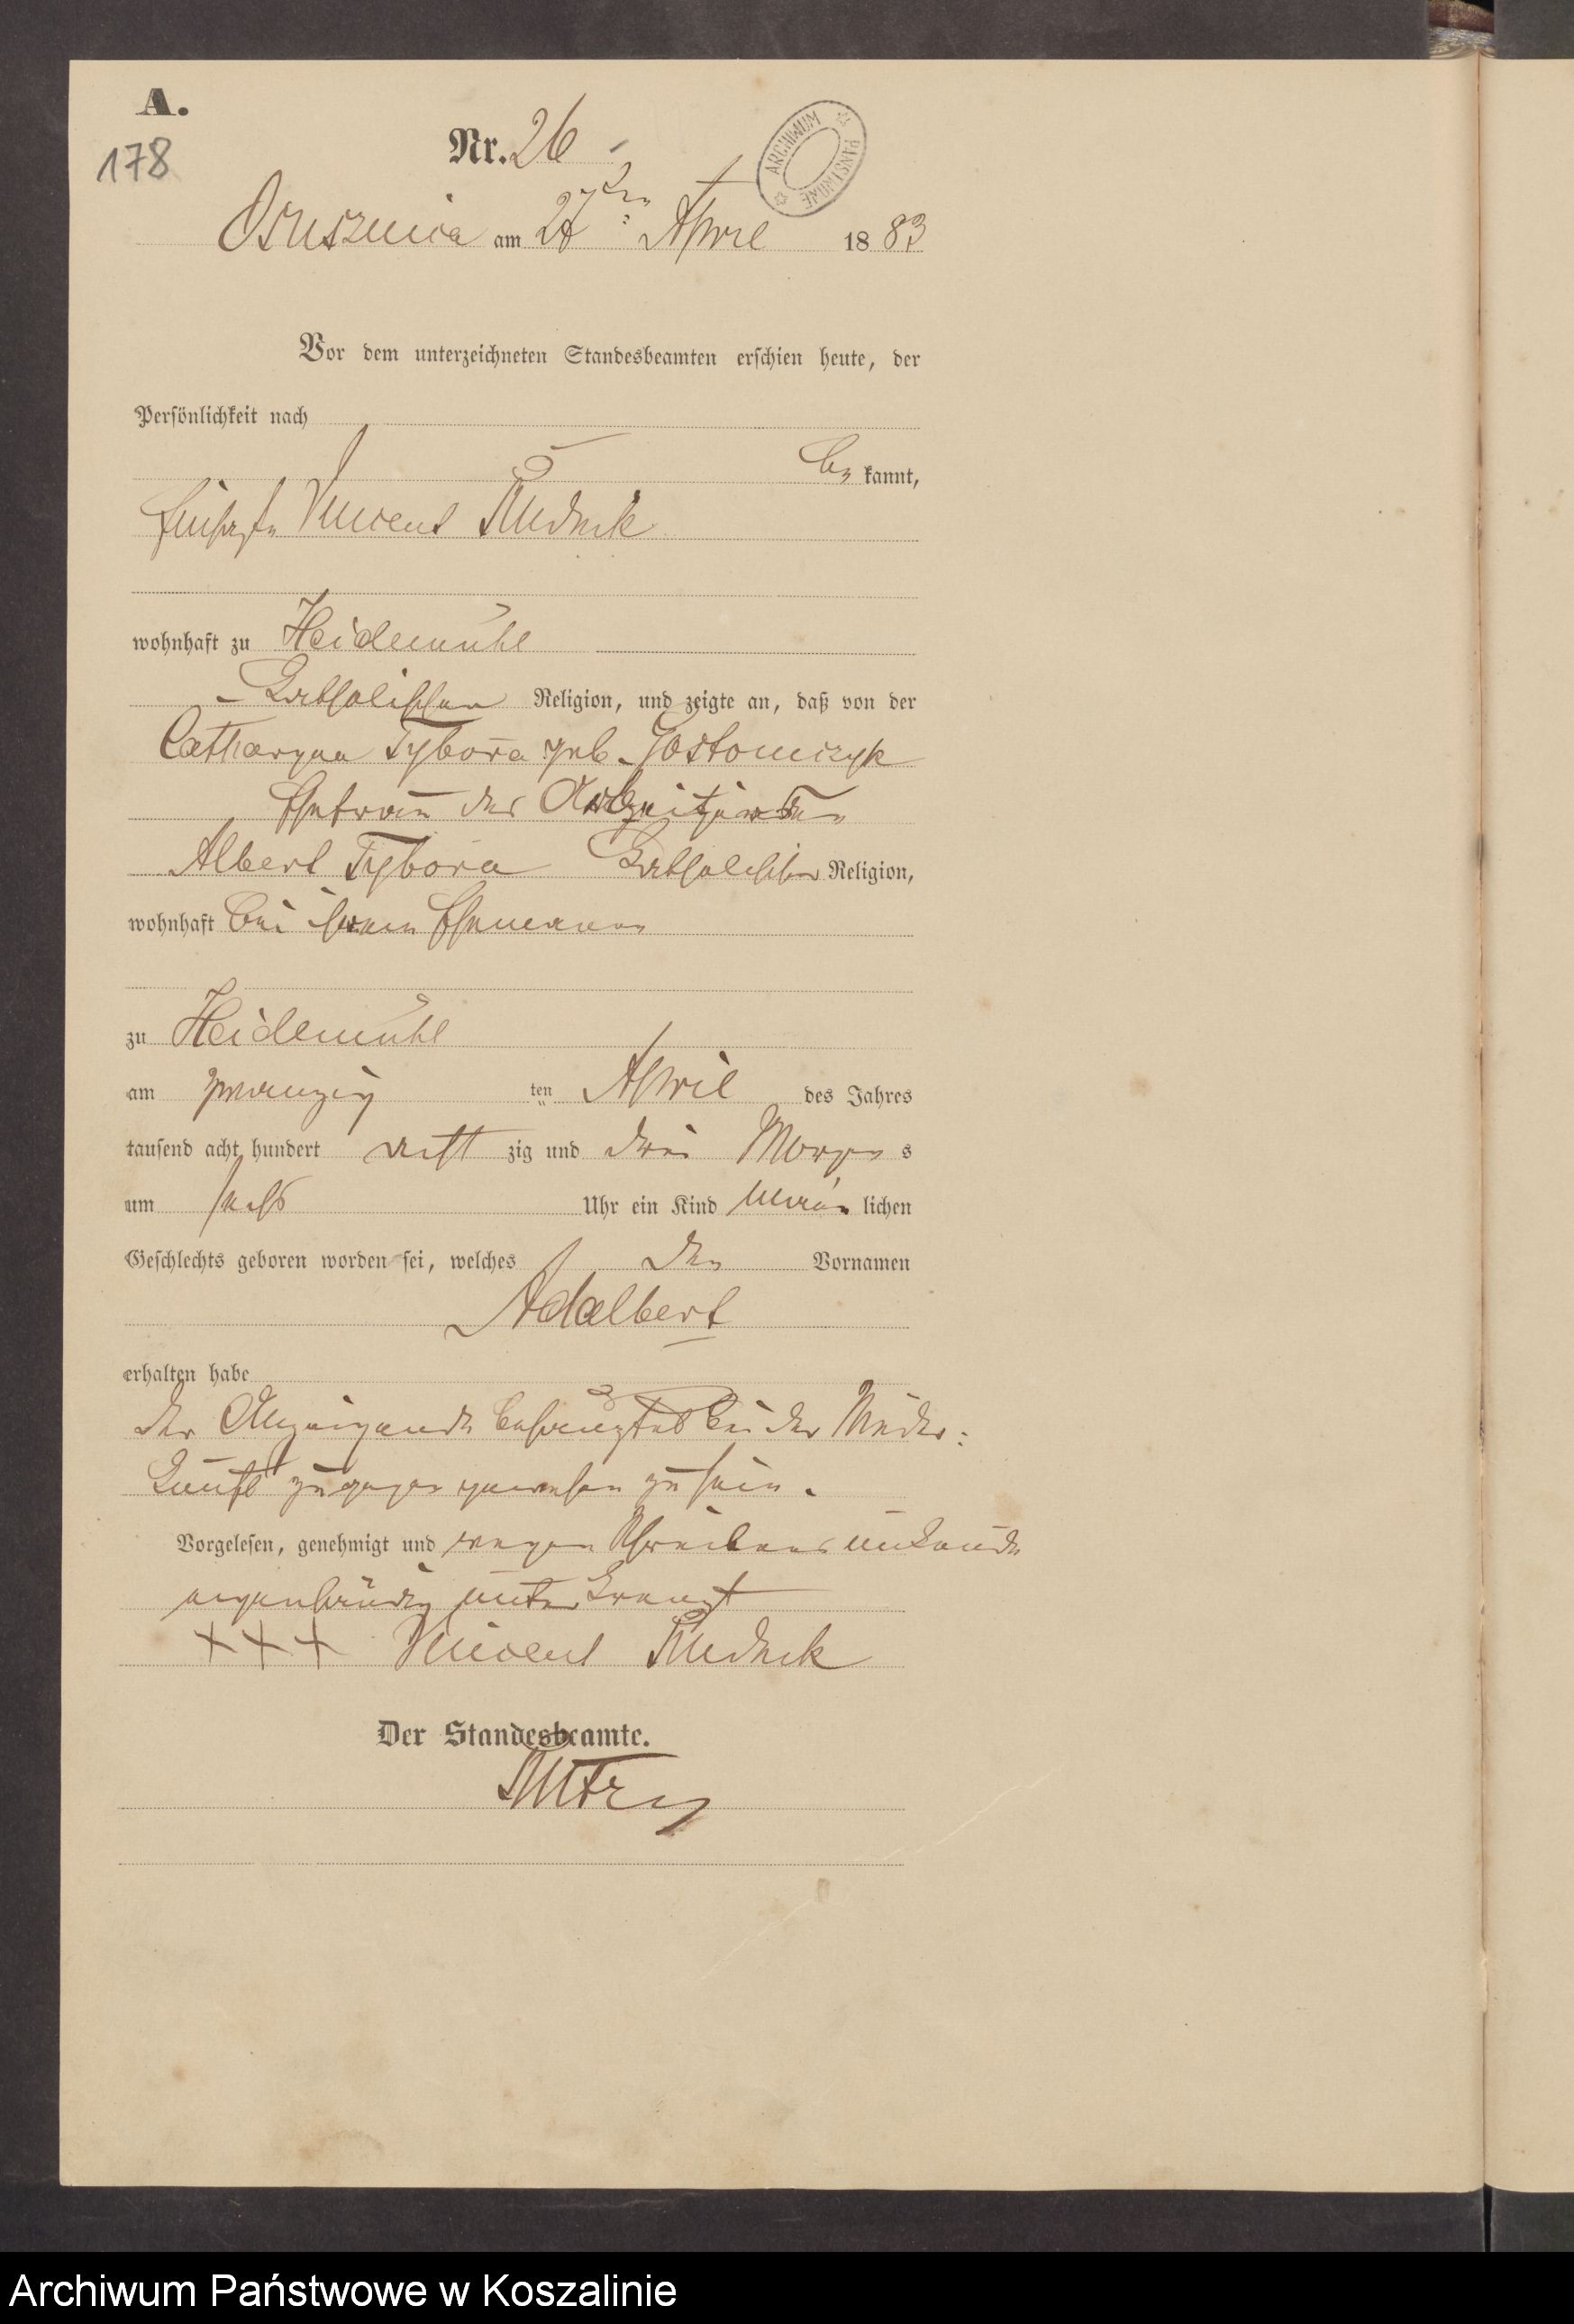 A.
178
Nr. 26
ARCHIWUM PAŃSTWOWE
Osusznica am 27ten April 1883
Vor dem unterzeichneten Standesbeamten erschien heute, der
Persönlichkeit nach
be kannt,
Vincent Rudnik
wohnhaft zu Heidemühl
katholischen Religion, und zeigte an, daß von der
Catharyna Tybora geb. Gostomczyk
Ehefrau des
Albert Tybora katholischer Religion,
wohnhaft bei ihrem Ehemann
zu Heidemühl
am zwanzig ten April des Jahres
tausend acht hundert acht zig und drei Morgens
um sechs Uhr ein Kind männlichen
Geschlechts geboren worden sei, welches den Vornamen
Adalbert
erhalten habe
Der Anzeigende bezeugte bei der Nieder:
kunft zugegen gewesen zu sein.
Vorgelesen, genehmigt und wegen Schreibensunkunde
eigenhändig unterkreuzt
+++ Vincent Rudnik
Der Standesbeamte.
Archiwum Państwowe w Koszalinie